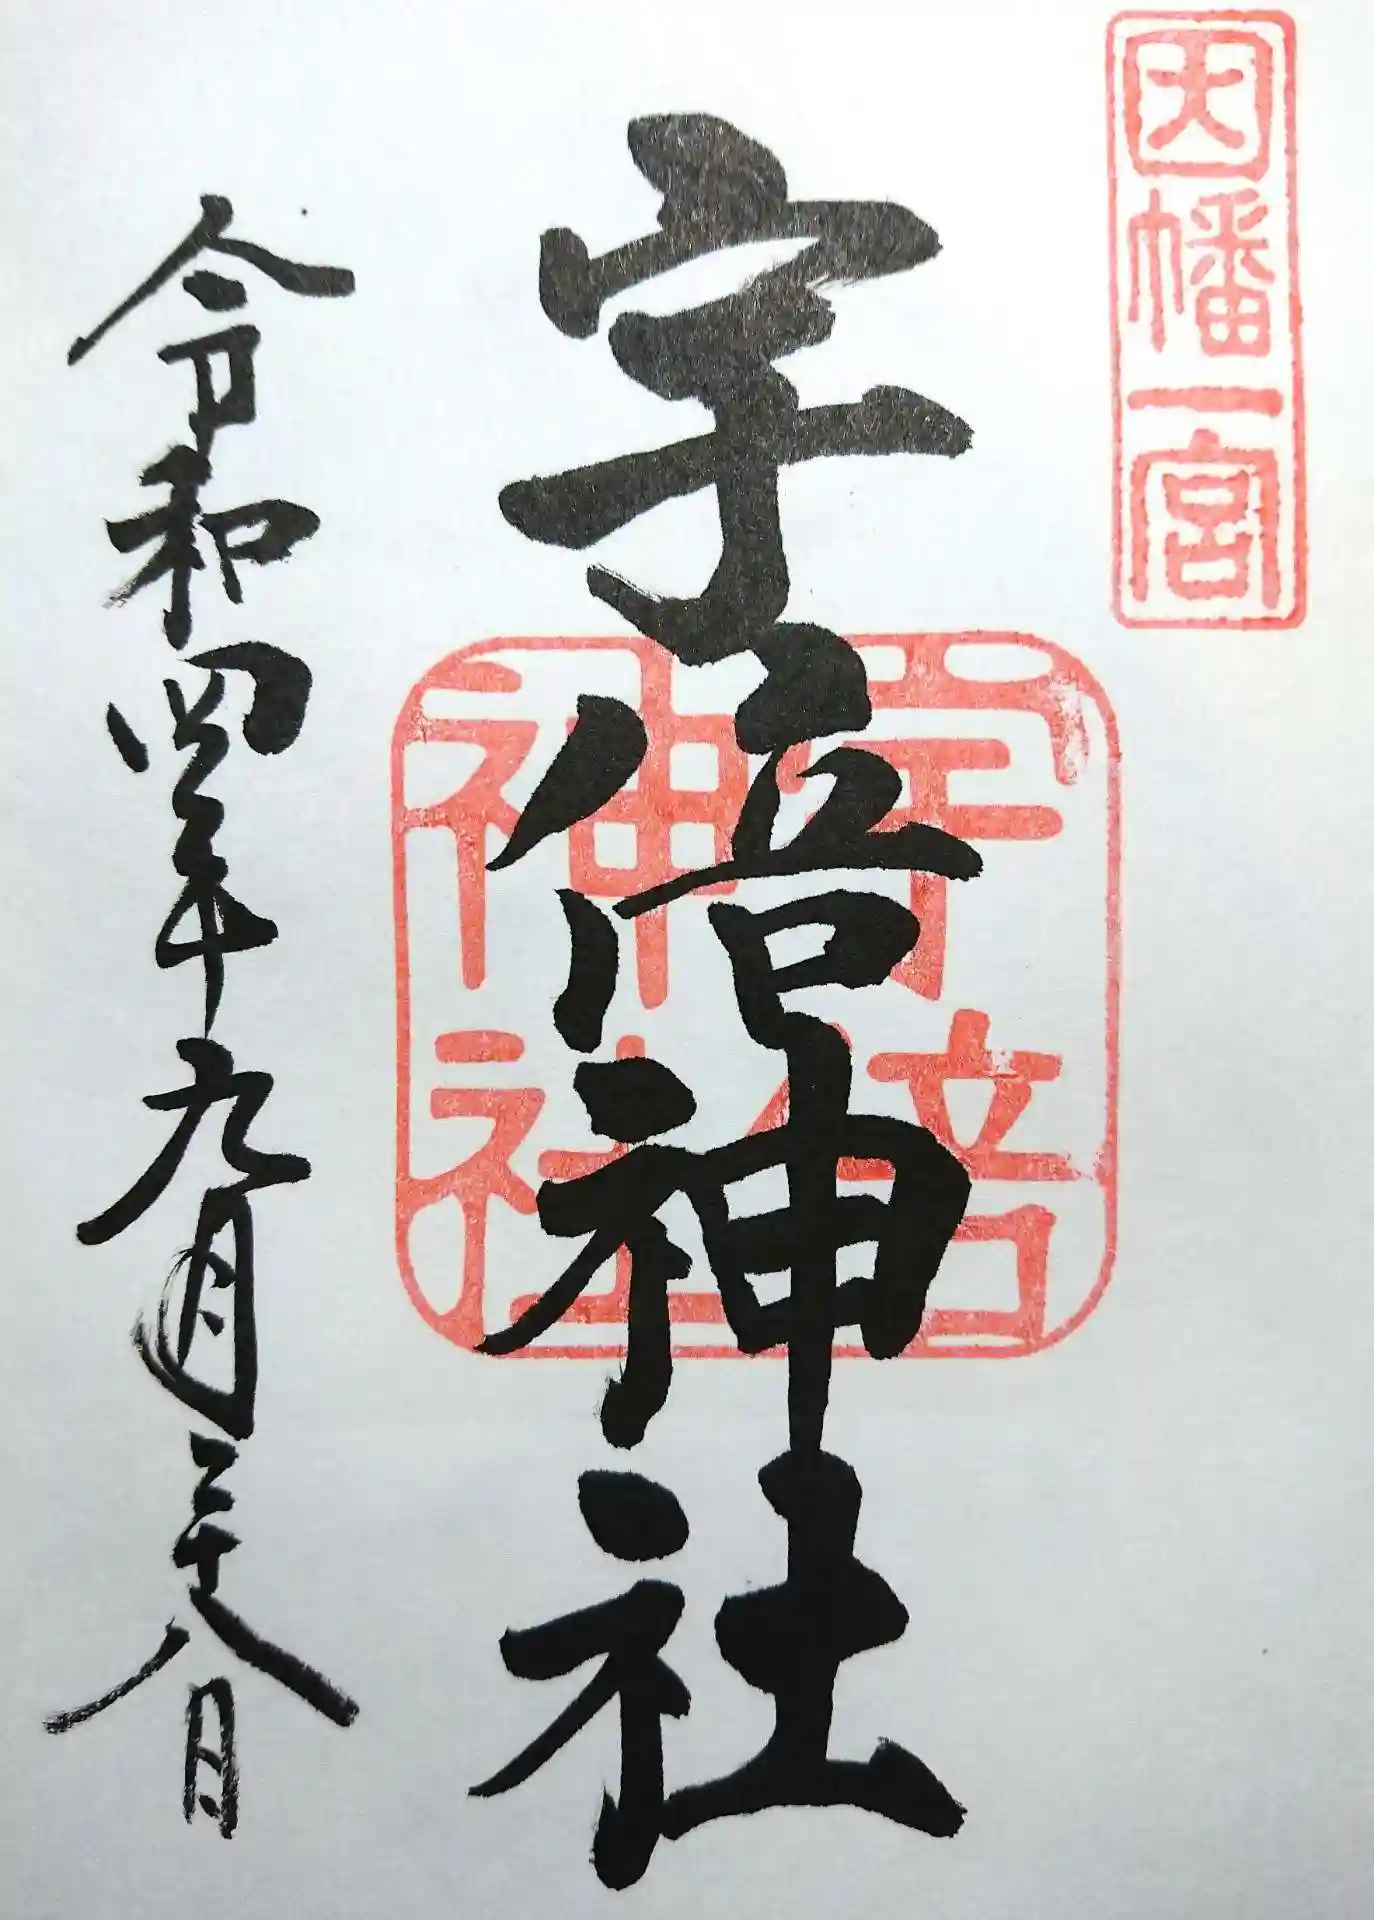 因幡一宮
宇倍神社
宇倍
神社
令和四年九月二十八日